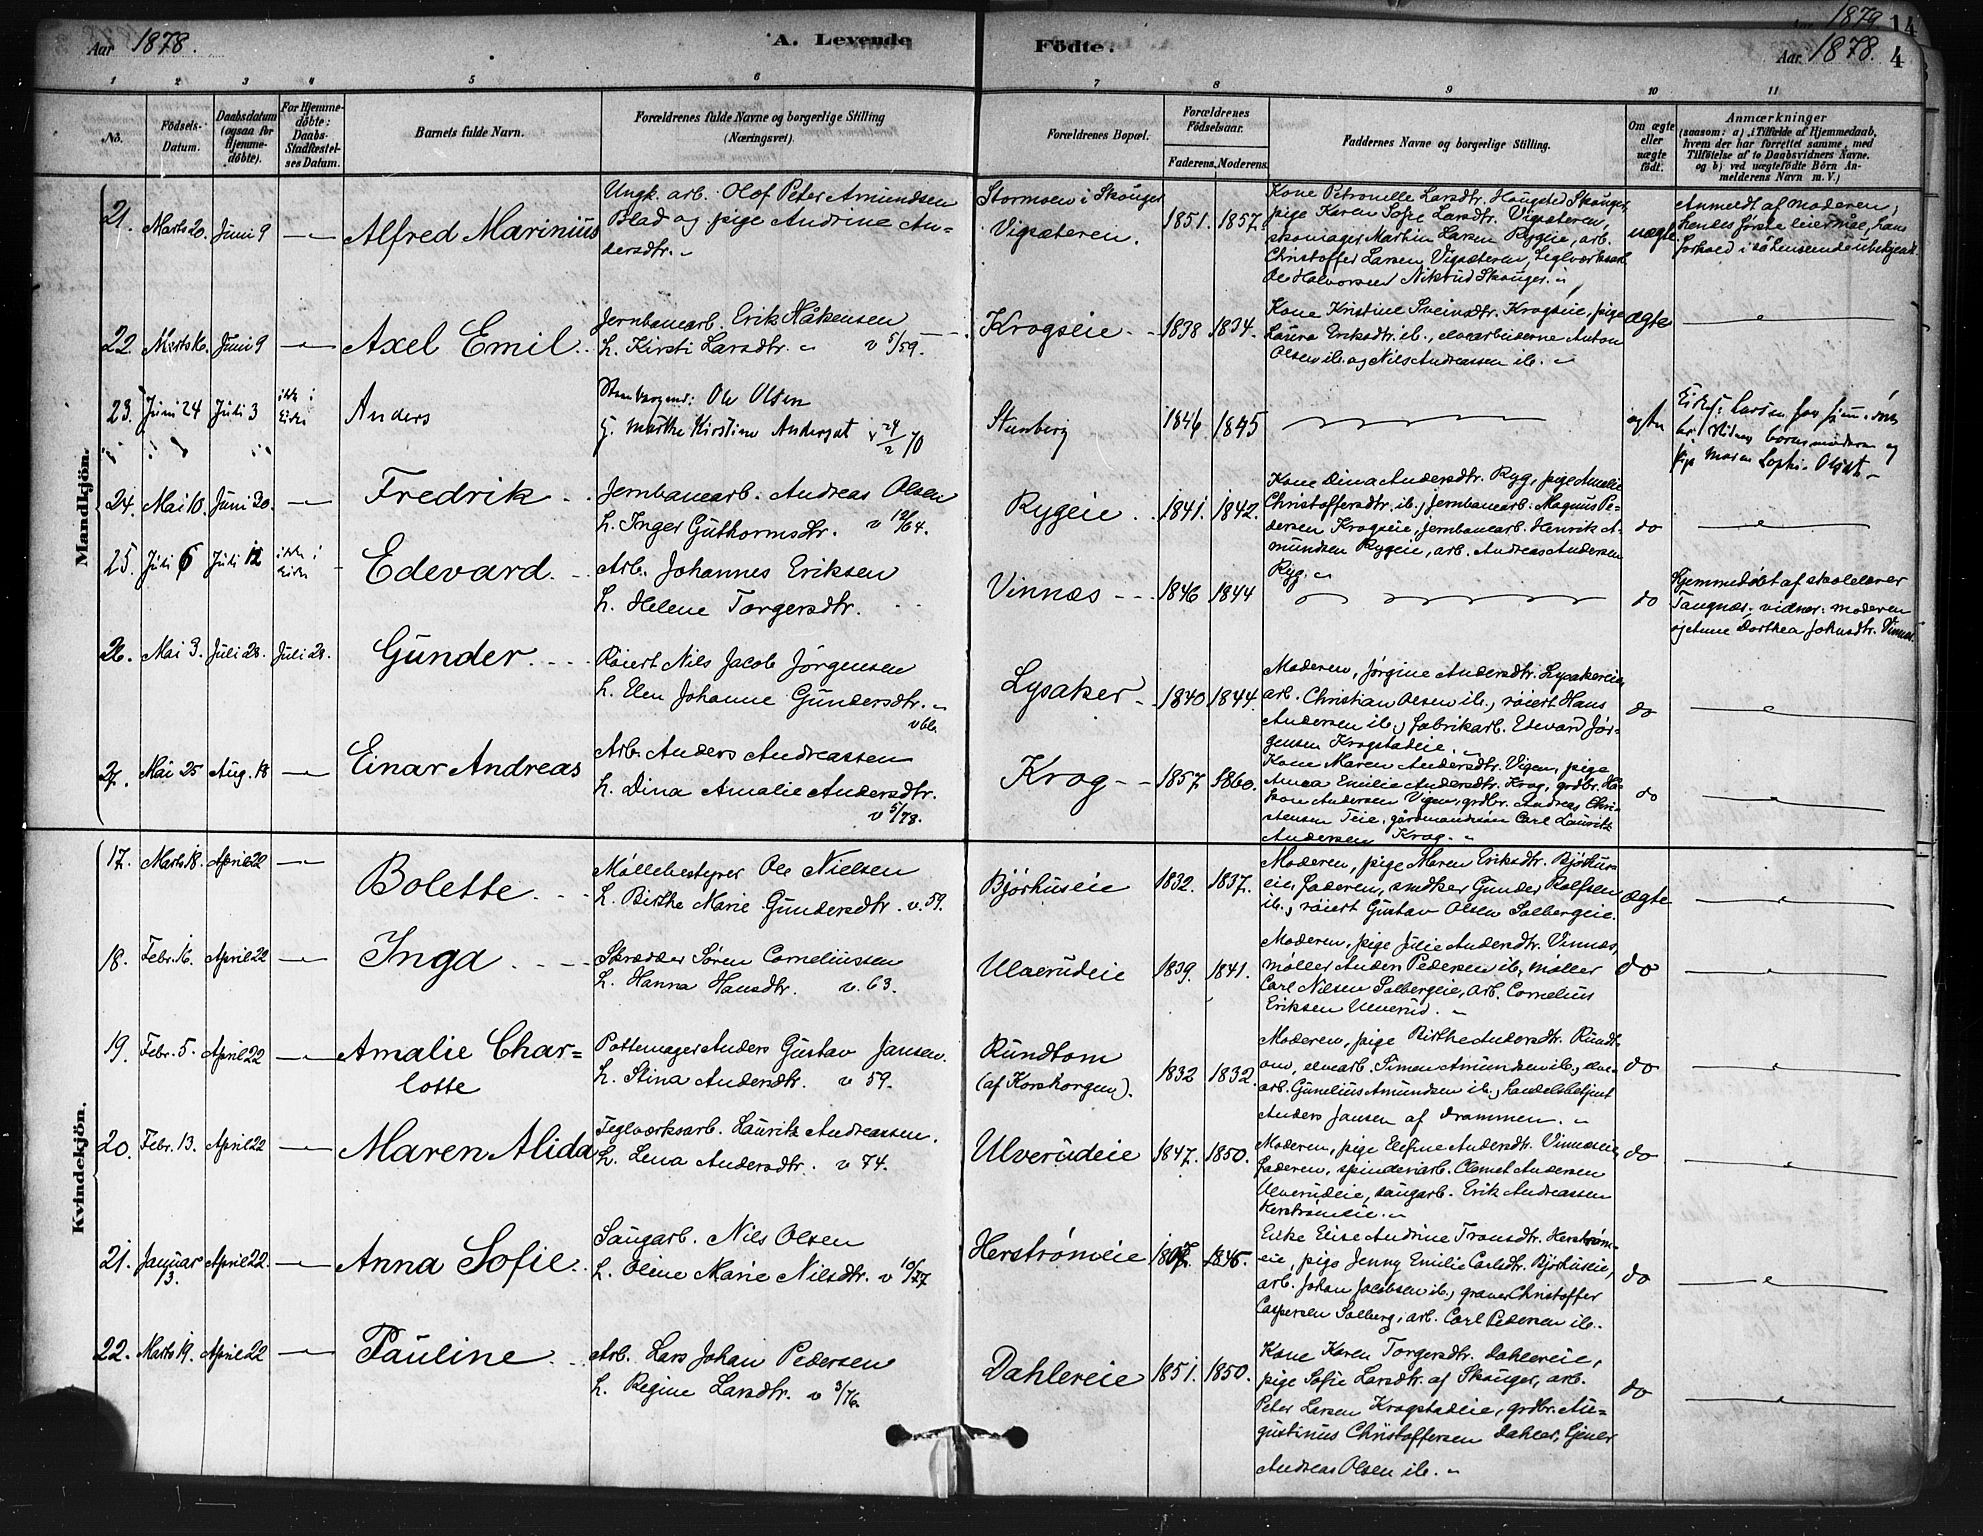 Aar 1878.
A. Levende
Födte.
Aar 1879 14
Aar 1878. 4
1 2 3 4 5 6 7 8 9 10 11
No.
Födsels-
Datum.
Daabsdatum
(ogsaa for
Hjemme-
döbte).
For Hjemme-
døbte:
Daabs-
Stadfæstel-
ses Datum.
Barnets fulde Navn.
Forældrenes fulde Navne og borgerlige Stilling
(Næringsvei).
Forældrenes Bopæl.
Forældrenes
Födselsaar.
Faderens. Moderens.
Faddernes Navne og borgerlige Stilling.
Om ægte
eller
uægte
født.
Anmærkninger
(saasom: a) i Tilfælde af Hjemmedaab,
hvem der har forrettet samme, med
Tilföielse af to Daabsvidners Navne.
og b) ved uægtefödte Börn An-
melderens Navn m. V.)
Mandkjön.
21. Marts 20. Juni 9 Alfred Marinius
Ungk. arb. Olof Peter Amundsen
Blad og pige Andrine An-
dersdtr.
Stormoen i Skouger
Vigsæteren.
1851. 1857.
Kone Petronelle Larsdtr. Haugsted Skouger,
pige Karen Sofie Larsdtr. Vigsæteren,
skomager Martin Larsen Rygeie, arb.
Christoffer Larsen Vigsæteren, Teglværksarb.
Ole Halvorsen Nikrud Skouger.
uægte
Anmeldt af moderen;
hendes første leiermåe, hans
forhold i så henseende ubekjendt.
22. Marts 10. Juni 9 Axel Emil
Jernbanearb. Erik Håkensen
h. Kirsti Larsdtr. v 5/59.
Krogseie 1838 1834.
Kone Kristine Sveinsdtr. Krogseie, pige
Laura Eriksdtr. ib., elvearbeiderne Anton
Olsen ib. og Nils Andreassen ib.
ægte
23. Juni 24 Juli 3 ikke i
Kirke
Anders
Ole Olsen
h. Marthe Kirstine Andersdt v 24/2 70
Stenberg 1846. 1845
ægte
24. Mai 10. Juni 30. Fredrik
Jernbanearb. Andreas Olsen
h. Inger Guthormsdtr. v 12/64.
Rygeie 1841. 1842.
Kone Dina Andersdtr. Ryg, pige Amalie
Christoffersdtr. ib., jernbanearb. Magnus Pe-
dersen Krogseie, jernbanearb. Henrik A-
mundsen Rygeie, arb. Andreas Andersen
Ryg.
do
25. Juli 6 Juli 12 ikke i
Kirke
Edevard.
Arb. Johannes Eriksen
h. Helene Torgersdtr.
Vinnæs 1846 1844
do
Hjemmedøbt af skolelærer
Tangnæs. vidner: moderen
og Anne Dorthea Johnsdtr. Vinnæs.
26. Mai 3. Juli 28. Juli 28. Gunder
Røiert Nils Jacob Jørgensen
h. Elen Johanne Gundersdtr.
v 66.
Lysaker 1840 1844.
Moderen, Jørgine Andersdtr. Lysakereie,
arb. Christian Olsen ib., røiert Hans
Andersen ib., fabrikarb. Edevard Jør-
gensen Krogstadeie.
do
27. Mai 25 Aug. 18 Einar Andreas
Arb. Anders Andreassen
h. Dina Amalie Andersdtr.
v 5/78.
Krog 1857 1860.
Kone Maren Andersdtr. Vigen, pige
Anna Emilie Andersdtr. Krog, grdbr. Hå-
kon Andersen Vigen, grdbr. Andreas Chri-
stensen Teie, gårdmandssøn Carl Lauritz
Andersen Krog.
do
Kvindekjön.
17. Marts 18. April 22 Bolette
Møllebestyrer Ole Nielsen
h. Birthe Marie Gundersdtr. v. 59.
Bjørhuseie 1832. 1837.
Moderen, pige Maren Eriksdtr. Bjørhus-
eie, faderen, snedker Gunder Rolfsen
ib., røiert Gustav Olsen Solbergeie.
ægte
18. Febr. 16. April 22 Inga
Skrædder Søren Corneliussen
h. Hanna Hansdtr. v. 63.
Ulverudeie 1839. 1841.
Moderen, pige Julie Andersdtr. Vinnæs,
møller Anders Pedersen ib., møller
Carl Nilsen Solbergeie, arb. Cornelius
Eriksen Ulverud.
do
19. Febr. 5. April 22 Amalie Char-
lotte
Pottemager Anders Gustav Jansen.
h. Stina Andersdtr. v 59.
Rundtom
(af Korskorgen).
1832 1832.
Moderen, pige Birthe Andersdtr. Rundt-
om, elvearb. Simon Amundsen ib., elve-
arb. Gunelius Amundsen ib., handelsbetjent
Anders Jansen af Drammen.
do
20. Febr. 13. April 22 Maren Alida
Teglværksarb. Lauritz Andreassen.
h. Lena Andersdtr. v 74.
Ulverudeie 1847. 1850.
Moderen, pige Elefine Andersdtr. Vinnæseie,
faderen, spinderiarb. Clemet Andersen
Ulverudeie, saugarb. Erik Andreassen
Herstrømeie.
do
21. Januar
13. April 22. Anna Sofie
Saugarb. Nils Olsen
h. Oline Marie Nilsdtr. v 10/77
Herstrømeie 1845.
Enke Elise Andrine Transdtr. Herstrøm-
eie, pige Jenny Emilie Carlsdtr. Bjørhuseie,
arb. Johan Jacobsen ib., graver Christoffer
Caspersen Solberg, arb. Carl Pedersen ib.
do
22. Marts 19. April 22 Pauline
Arb. Lars Johan Pedersen
h. Regine Larsdtr. v 3/76.
Dahlereie 1851. 1850.
Kone Karen Torgersdtr. Dahlereie,
pige Sofie Larsdtr. af Skouger, arb.
Peter Larsen Krogstadeie, grdbr. Au-
gustinus Christoffersen Dahler, Gjner
Andreas Olsen ib.
do